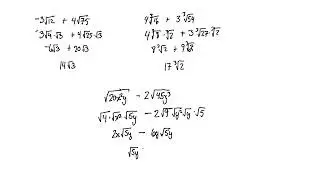 -3√12 + 4√75
-3√4·√3 + 4√25·√3
-6√3 + 20√3
14√3
4∛16 + 3∛54
4∛8·∛2 + 3∛27·∛2
8∛2 + 9∛2
17∛2
√20x²y - 2√45y³
√4·√x²·√5y - 2√9√y²√y·√5
2x√5y - 6y√5y
√5y